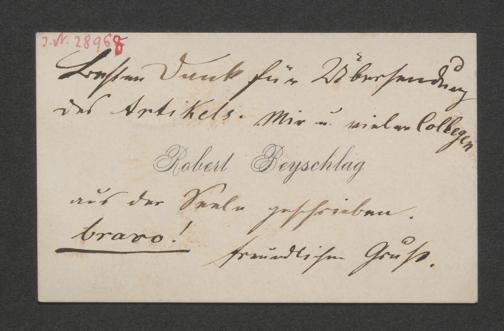 J.N. 28968
Besten Dank für Übersendung
des Artikels. Mir u. vielen Collegen
Robert Beyschlag
aus der Seele geschrieben.
bravo!
freundlichen Gruß.